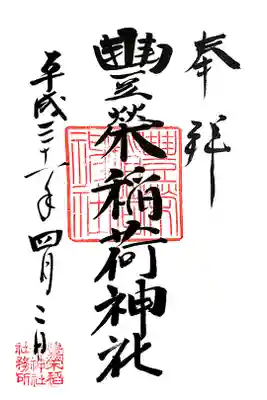 奉拝
豐榮稲荷神社
平成三十一年四月二日
豐榮稲
荷神社
社務所